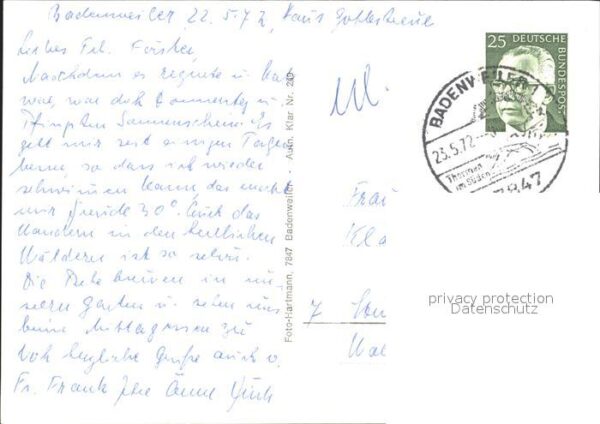 Badenweiler, 22.5.72, Haus Gottestreue
Liebes Frl. Förster,
Nachdem es regnete u. kalt
war, war doch Donnerstag u.
Pfingsten Sonnenschein. Es
geht mir seit einigen Tagen
besser, so dass ich wieder
schwimmen kann, das macht
mir Freude 30°. Auch das
Wandern in den herrlichen
Wäldern ist so schön.
Die Rehe kommen in un-
seren Garten u. sehen uns
beim Mittagessen zu
herzliche Grüße auch v.
Fr. Frank Ihre Änne
Foto-Hartmann, 7847 Badenweiler - Aufn. Klar Nr. 240
25 DEUTSCHE BUNDESPOST
BADENWEILER 1
23.5.72
Thermen
im Süden
7847
Frau
7
privacy protection
Datenschutz